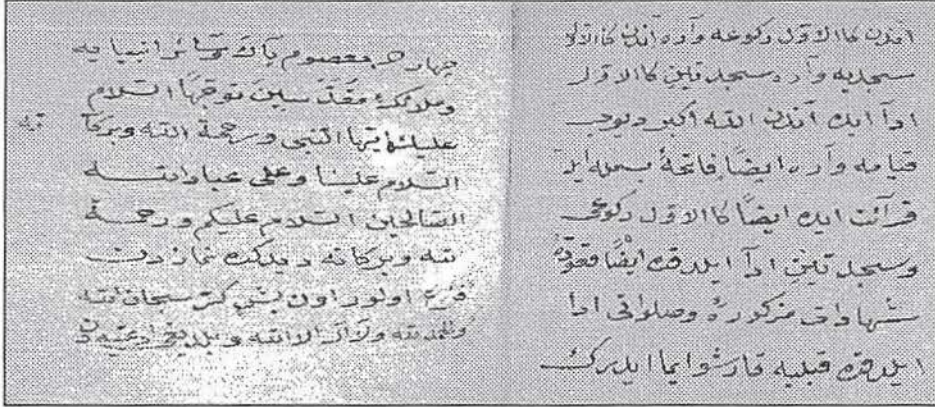 اندن كاالاول ركوعه واره اندن كاالاول
سجديه واره سجدتين كاالاول
ادآ ايك اندن الله اكبر ديوب
قيامه واره ايضًا فاتحهٔ بسمله ايله
قرآئت ايك ايضًا كاالاول ركوعى
وسجدتين ادآ ايلدقده ايضًا قعوده
شهادات مزكوره وصلواتى ادا
ايلدقده قبليه قارشو ايما ايلدرك
چهارده معصوم پاك وسائر انبيايه
وملائكهٔ مقدسين توجهًا السلام
عليك ايها النبى ورحمة الله وبركا
ته
السلام علينا وعلى عباد الله
الصالحين السلام عليكم ورحمة
الله وبركاته ديدكده نمازدن
فارغ اولور اون بش كره سبحان الله
والحمد لله ولا اله الا الله